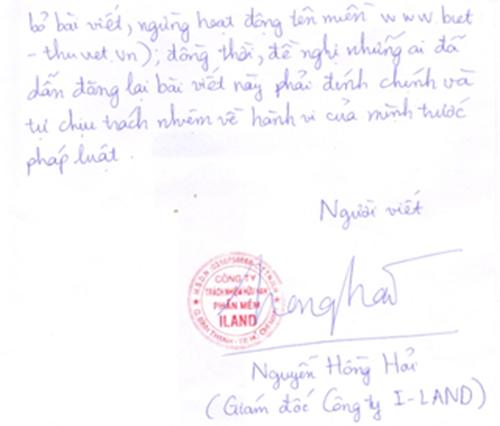 bỏ bài viết, ngừng hoạt động tên miền www.biet
-thuvet.vn); đồng thời, đề nghị những ai đã
dẫn đăng lại bài viết này phải đính chính và
tự chịu trách nhiệm về hành vi của mình trước
pháp luật.
Người viết
CÔNG TY
TRÁCH NHIỆM HỮU HẠN
PHẦN MỀM
ILAND
Q. BÌNH THẠNH - TP. HỒ CHÍ MINH
Nguyễn Hồng Hải
(Giám đốc Công ty I-LAND)